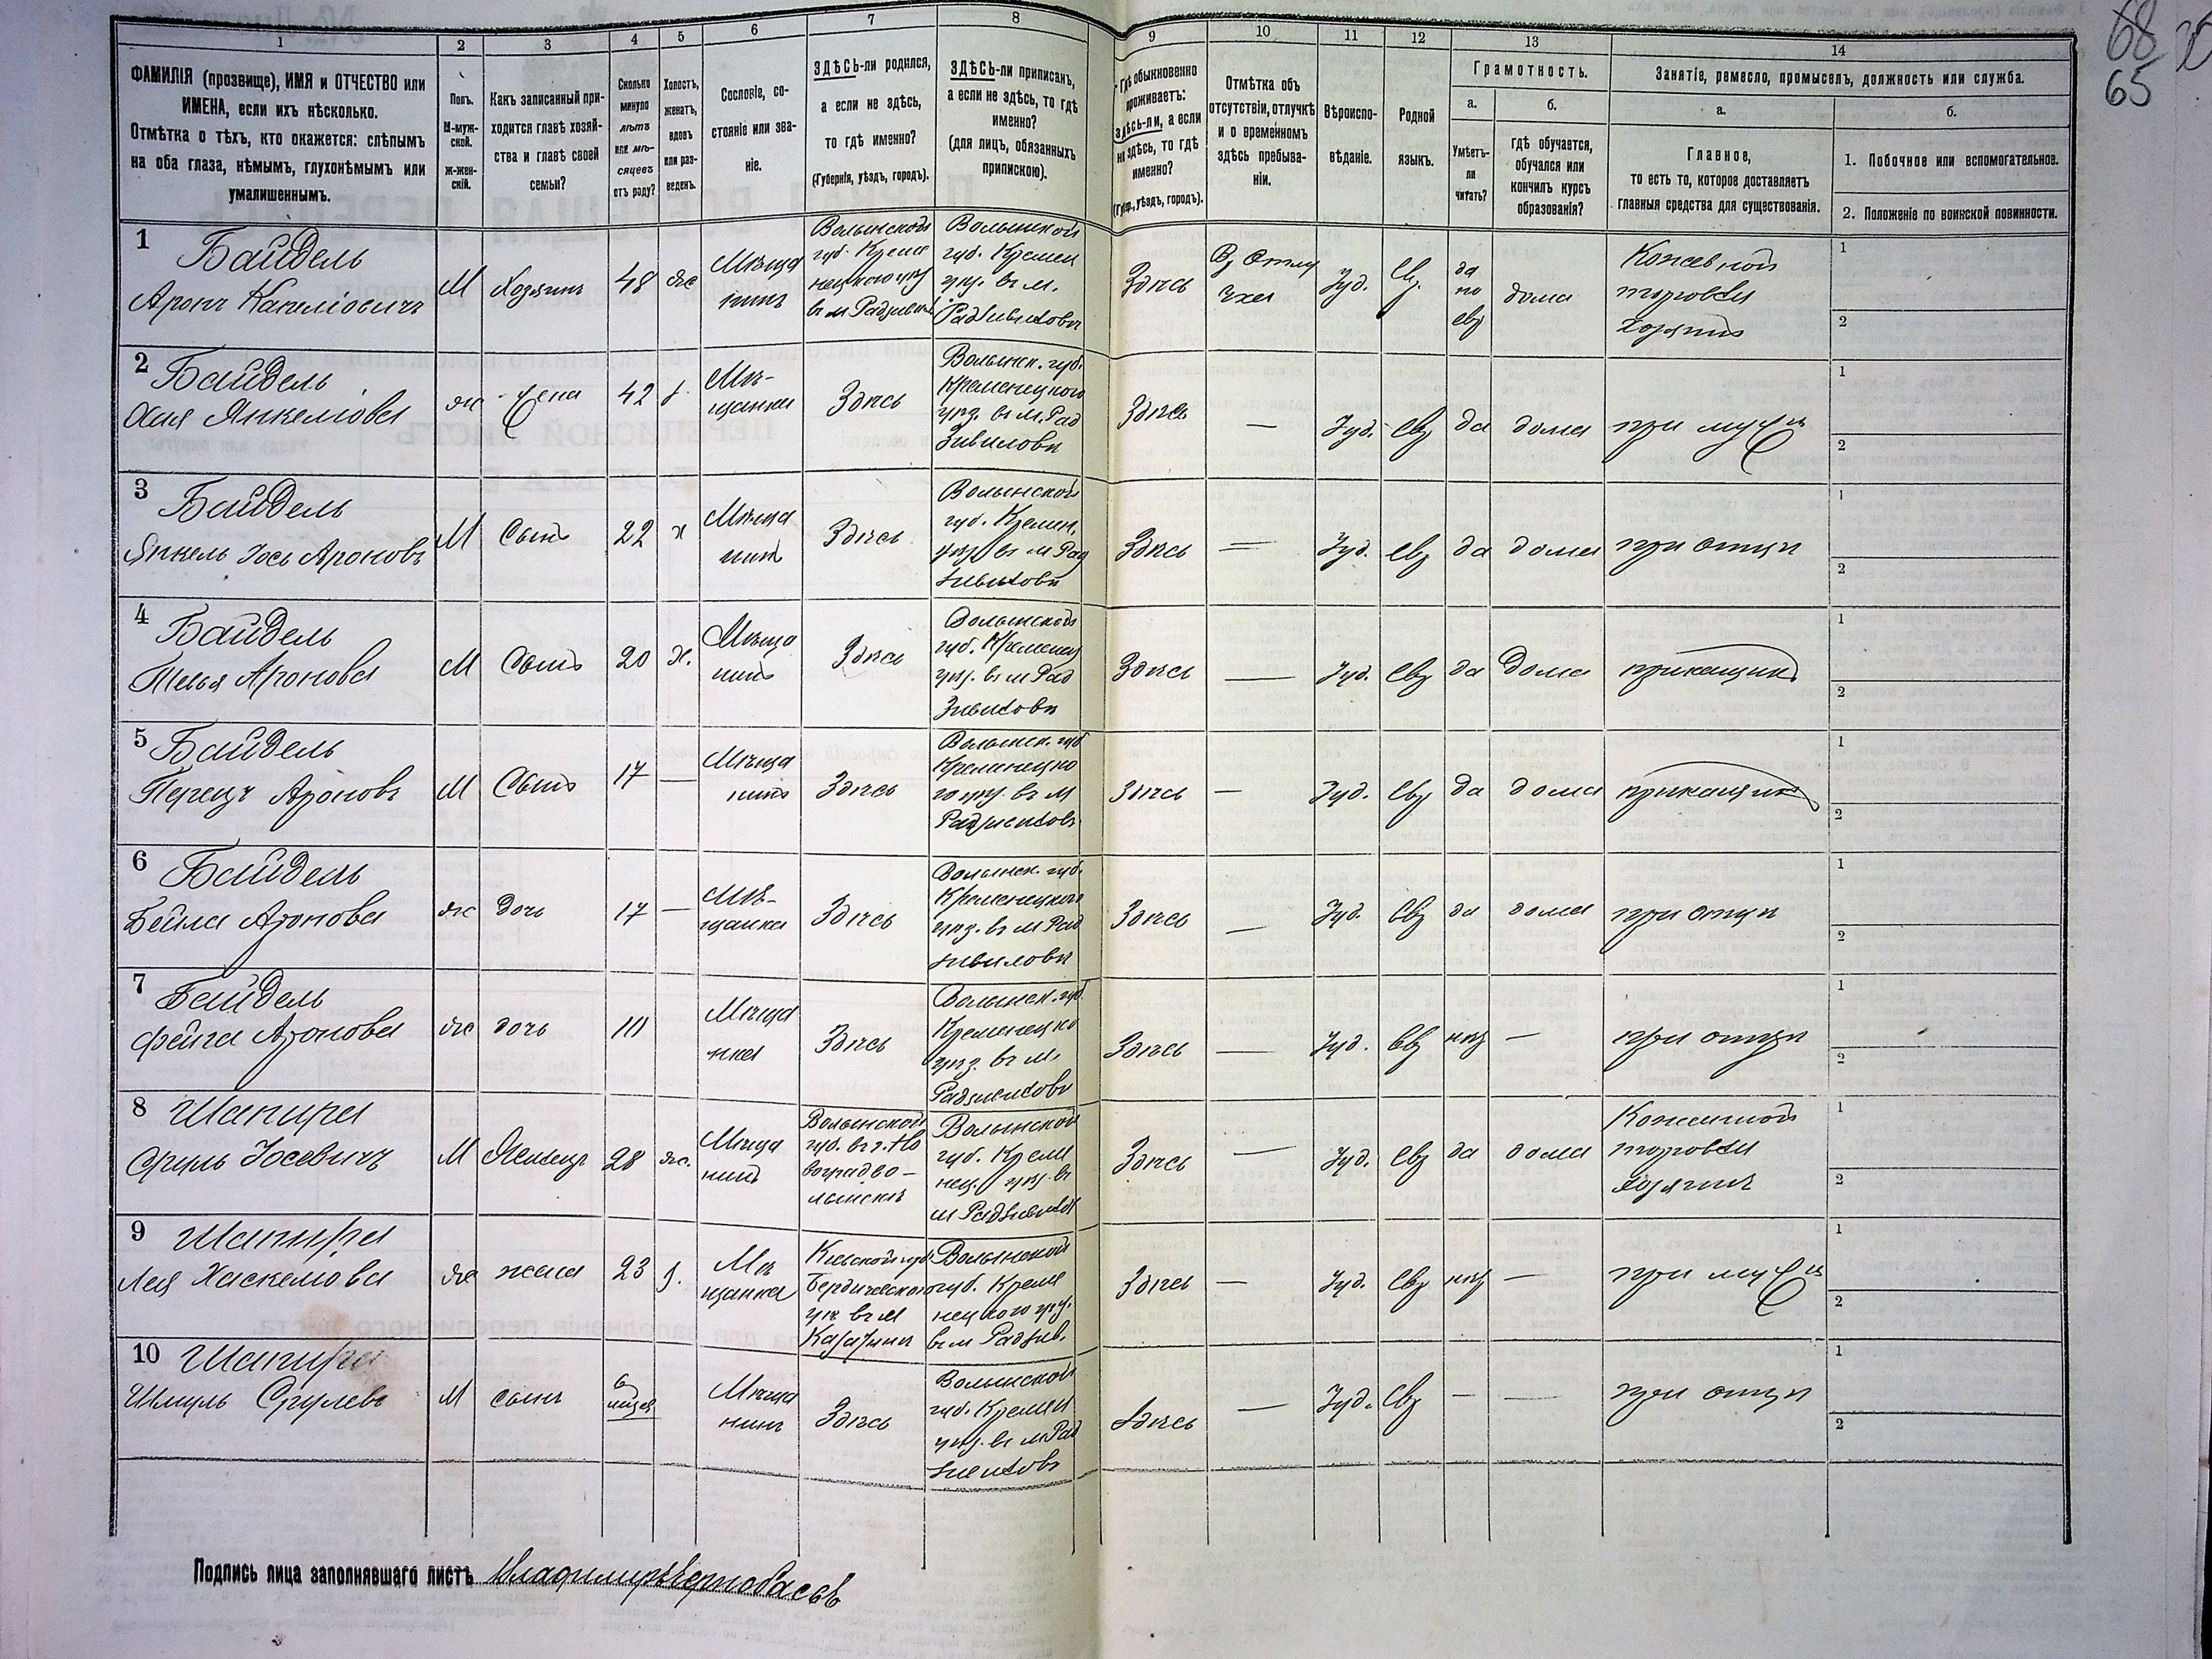 68
65
1 2 3 4 5 6 7 8 9 10 11 12 13 14
ФАМИЛІЯ (прозвище), ИМЯ и ОТЧЕСТВО или
ИМЕНА, если ихъ нѣсколько.
Отмѣтка о тѣхъ, кто окажется: слѣпымъ
на оба глаза, нѣмымъ, глухонѣмымъ или
умалишеннымъ.
Полъ.
М-муж-
ской.
ж-жен-
скій.
Какъ записанный при-
ходится главѣ хозяй-
ства и главѣ своей
семьи?
Сколько
минуло
лѣтъ
или мѣ-
сяцевъ
отъ роду?
Холостъ,
женатъ,
вдовъ
или раз-
веденъ.
Сословіе, со-
стояніе или зва-
ніе.
ЗДѢСЬ-ли родился,
а если не здѣсь,
то гдѣ именно?
(Губернія, уѣздъ, городъ).
ЗДѢСЬ-ли приписанъ,
а если не здѣсь, то гдѣ
именно?
(для лицъ, обязанныхъ
припискою).
Гдѣ обыкновенно
проживаетъ:
здѣсь-ли, а если
не здѣсь, то гдѣ
именно?
(Губер., уѣздъ, городъ).
Отмѣтка объ
отсутствіи, отлучкѣ
и о временномъ
здѣсь пребыва-
ніи.
Вѣроиспо-
вѣданіе.
Родной
языкъ.
Грамотность.
а.
Умѣетъ-
ли
читать?
б.
гдѣ обучается,
обучался или
кончилъ курсъ
образованія?
Занятіе, ремесло, промыселъ, должность или служба.
а.
Главное,
то есть то, которое доставляетъ
главныя средства для существованія.
б.
1. Побочное или вспомогательное.
2. Положеніе по воинской повинности.
1 Байдель
Аронъ
М Хозяинъ 48 ж Мѣща
нинъ
Волынской
губ. Креме
нецкого уѣз
въ м Радзивил
Волынской
губ. Кремен
уѣз. въ м.
Радзивиловѣ
Здѣсь
Въ Отлу
чке
Іуд. Ев.
да
по
евр
дома
Кожевной
торговли
хозяинъ
1
2
2 Байдель
Хая Янкеліова
ж жена 42 з.
Мѣ-
щанка
Здѣсь
Волынск. губ.
Кременецкого
уѣз. въ м. Рад
зивиловѣ
Здѣсь — Іуд. евр да дома при мужѣ
1
2
3 Байдель
Янкель Іось Ароновъ
М Сынъ 22 х
Мѣща
нинъ
Здѣсь
Волынской
губ. Кремен.
уѣз. въ м Рад
зивиловѣ
Здѣсь — Іуд. евр да дома при отцѣ
1
2
4 Байдель
М Сынъ 20 х.
Мѣща
нинъ
Здѣсь
Волынской
губ. Кременец
уѣз. въ м Рад
зивиловѣ
Здѣсь — Іуд. евр да дома прикащикъ
1
2
5 Байдель
Перецъ Ароновъ
М Сынъ 17 —
Мѣща
нинъ
Здѣсь
Волынск. губ
Кременецко
го уѣз. въ м
Радзивиловѣ
Здѣсь — Іуд. евр да дома прикащикъ
1
2
6 Байдель
Бейла Аронова
ж дочь 17 —
Мѣ-
щанка
Здѣсь
Волынск. губ.
Кременецкого
уѣз. въ м Рад
зивиловѣ
Здѣсь — Іуд. евр да дома при отцѣ
1
2
7 Байдель
Фейга Аронова
ж дочь 10
Мѣща
нка
Здѣсь
Волынск. губ
Кременецко
уѣз. въ м.
Радзивиловѣ
Здѣсь — Іуд. евр нѣт — при отцѣ
1
2
8 Шапира
Сруль Іосевичъ
М Жилецъ 28 ж.
Мѣща
нинъ
Волынской
губ. въ г. Но
воградво-
лынскѣ
Волынской
губ. Креме
нец. уѣз. въ
м Радзивилов
Здѣсь — Іуд. евр да дома
торговли
хозяинъ
1
2
9 Шапира
Лея Хаскелiова
ж жена 23 з.
Мѣ
щанка
Кіевской губ
Бердичевского
уѣ. въ м
Казатинѣ
Волынской
губ. Креме
нецкого уѣз.
въ м Радзив.
Здѣсь — Іуд. евр нѣт — при мужѣ
1
2
10 Шапира
Шмуль Срулевъ
М сынъ
6
мѣсяц
Мѣща
нинъ
Здѣсь
Волынской
губ. Кремен
уѣз. въ м Рад
зивиловѣ
Здѣсь — Іуд. евр — — при отцѣ
1
2
Подпись лица заполнявшаго листъ Владимиръ